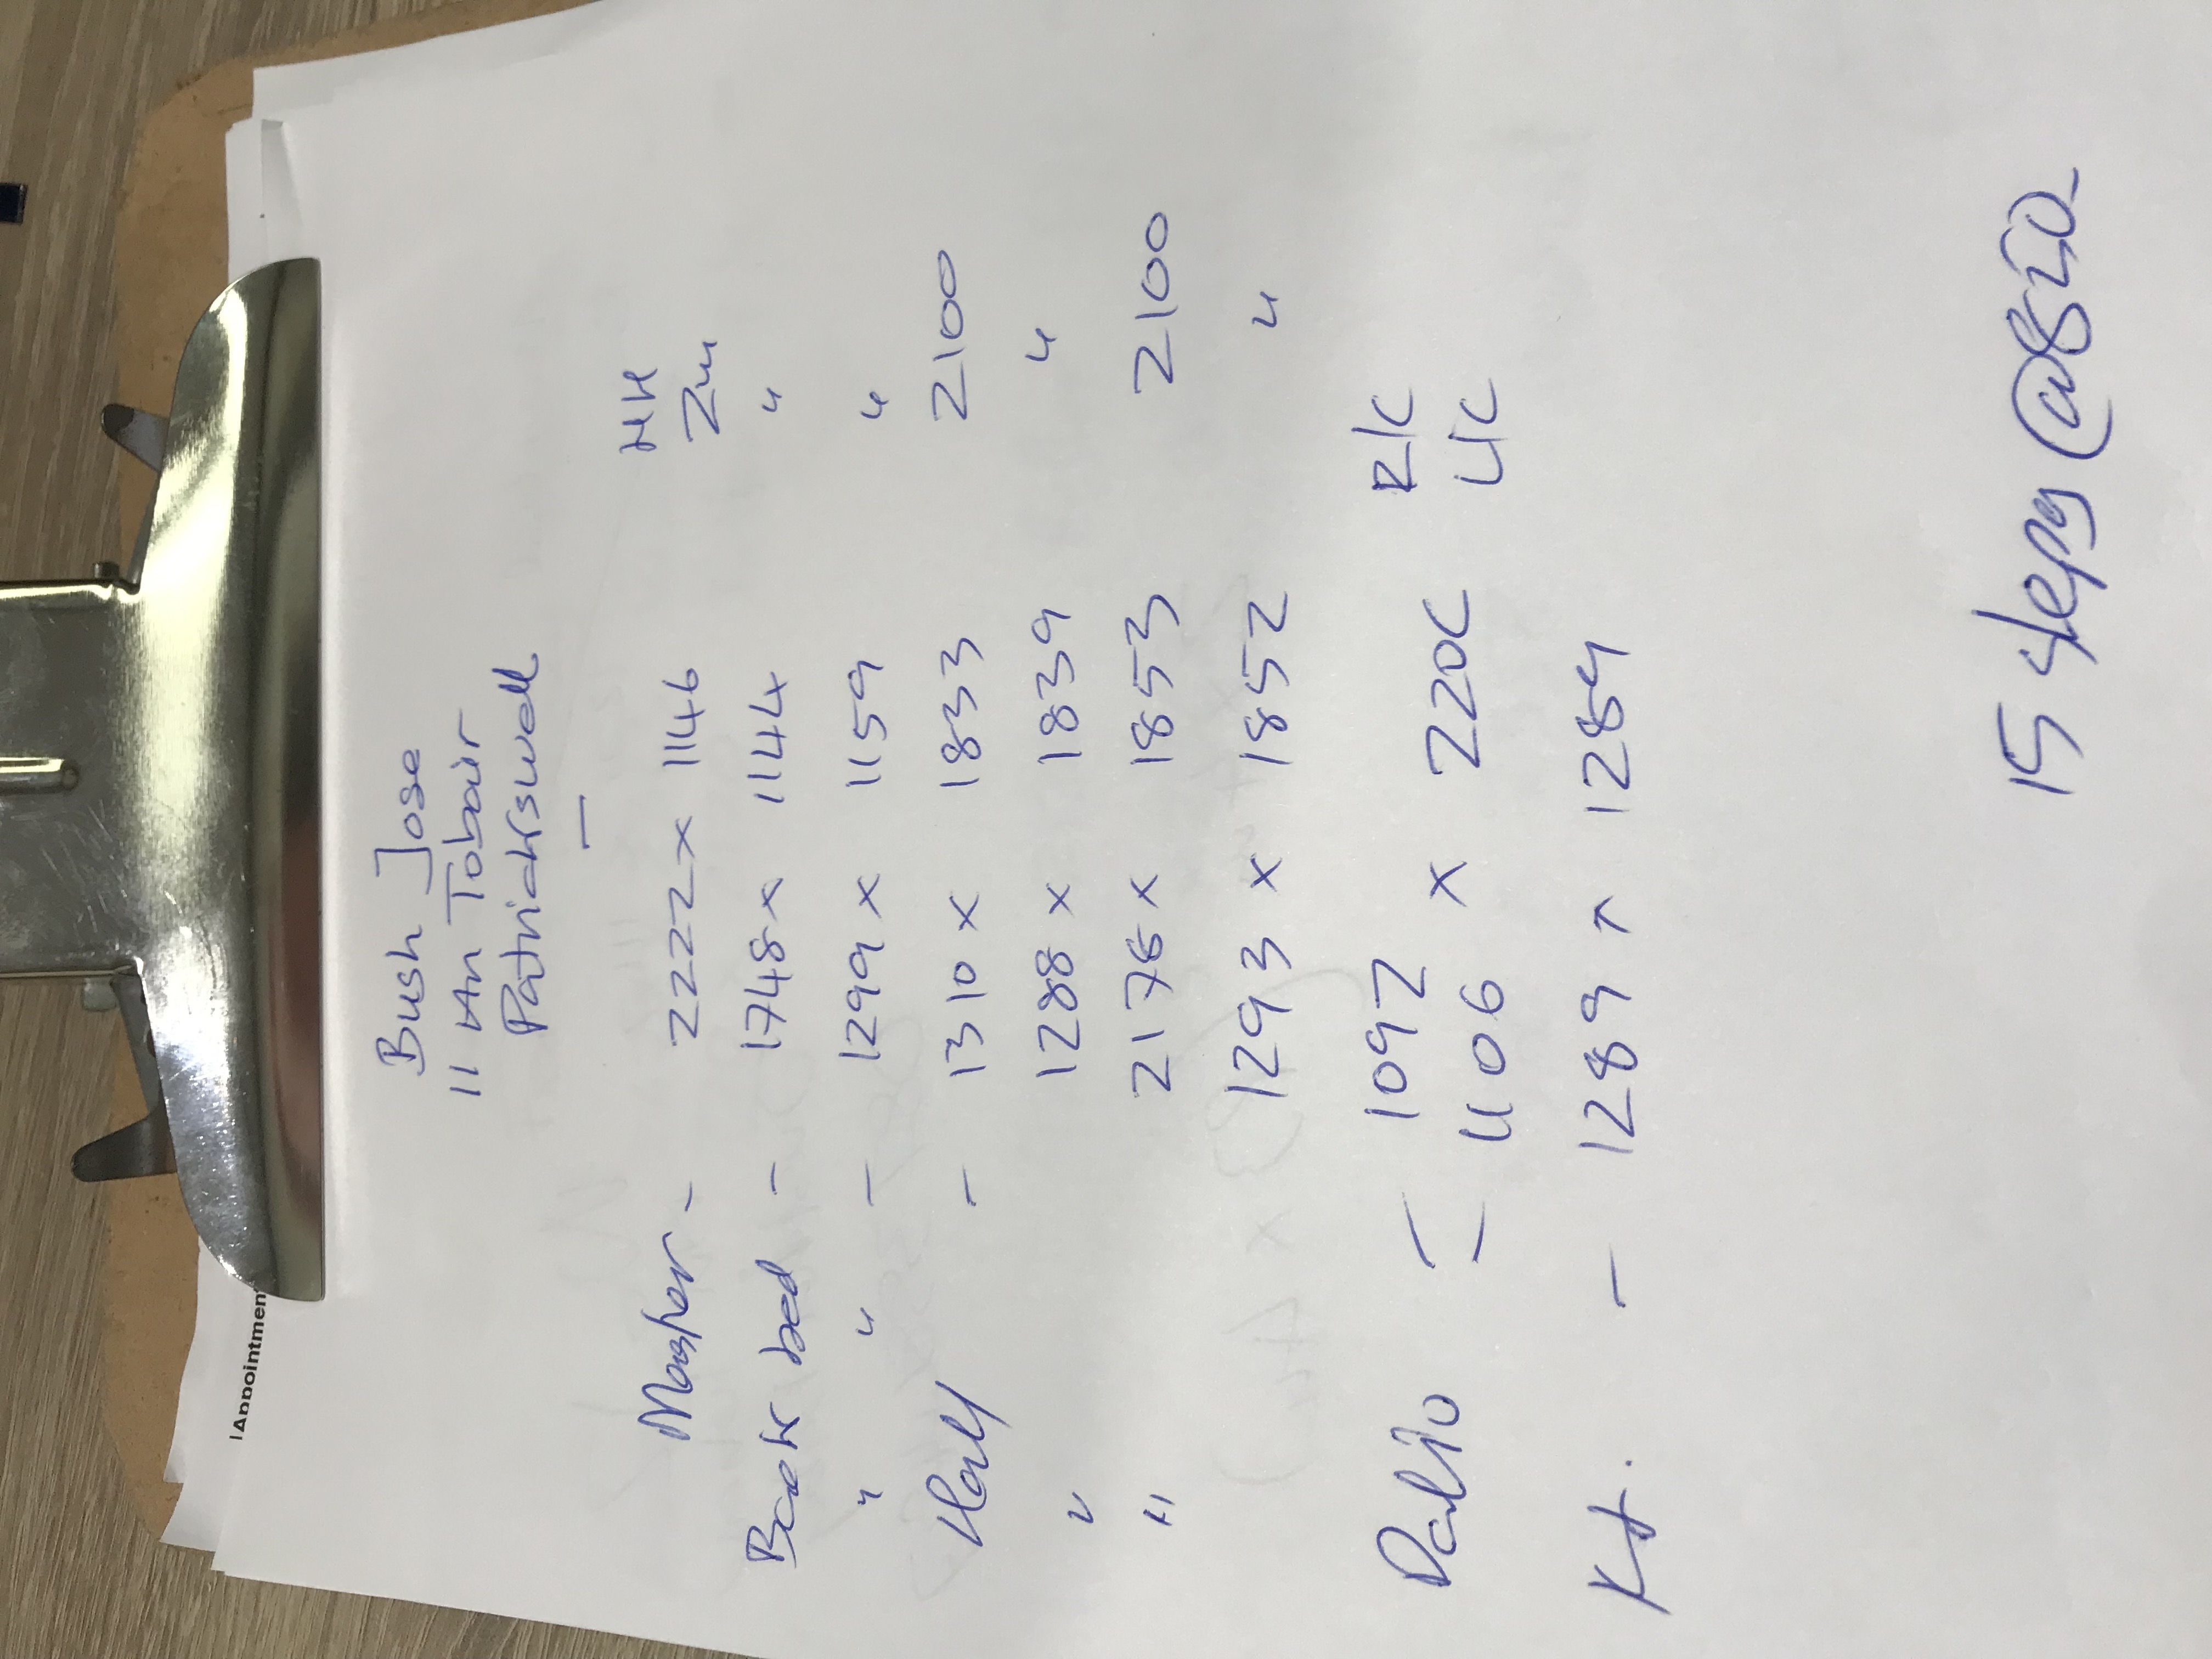 Appointment
Bush Jose
11 An Tobair
Patrickswell
HH
Master - 2222 x 1146 2m
Back bed - 1748 x 1144 "
" " - 1299 x 1159 "
Hall - 1310 x 1833 2100
" 1288 x 1839 "
" 2176 x 1853 2100
1293 x 1852 "
Patio - 1092 x 220C R/C
- 1106 L/C
Kt. - 1289 x 1284
15 Steps @ 820